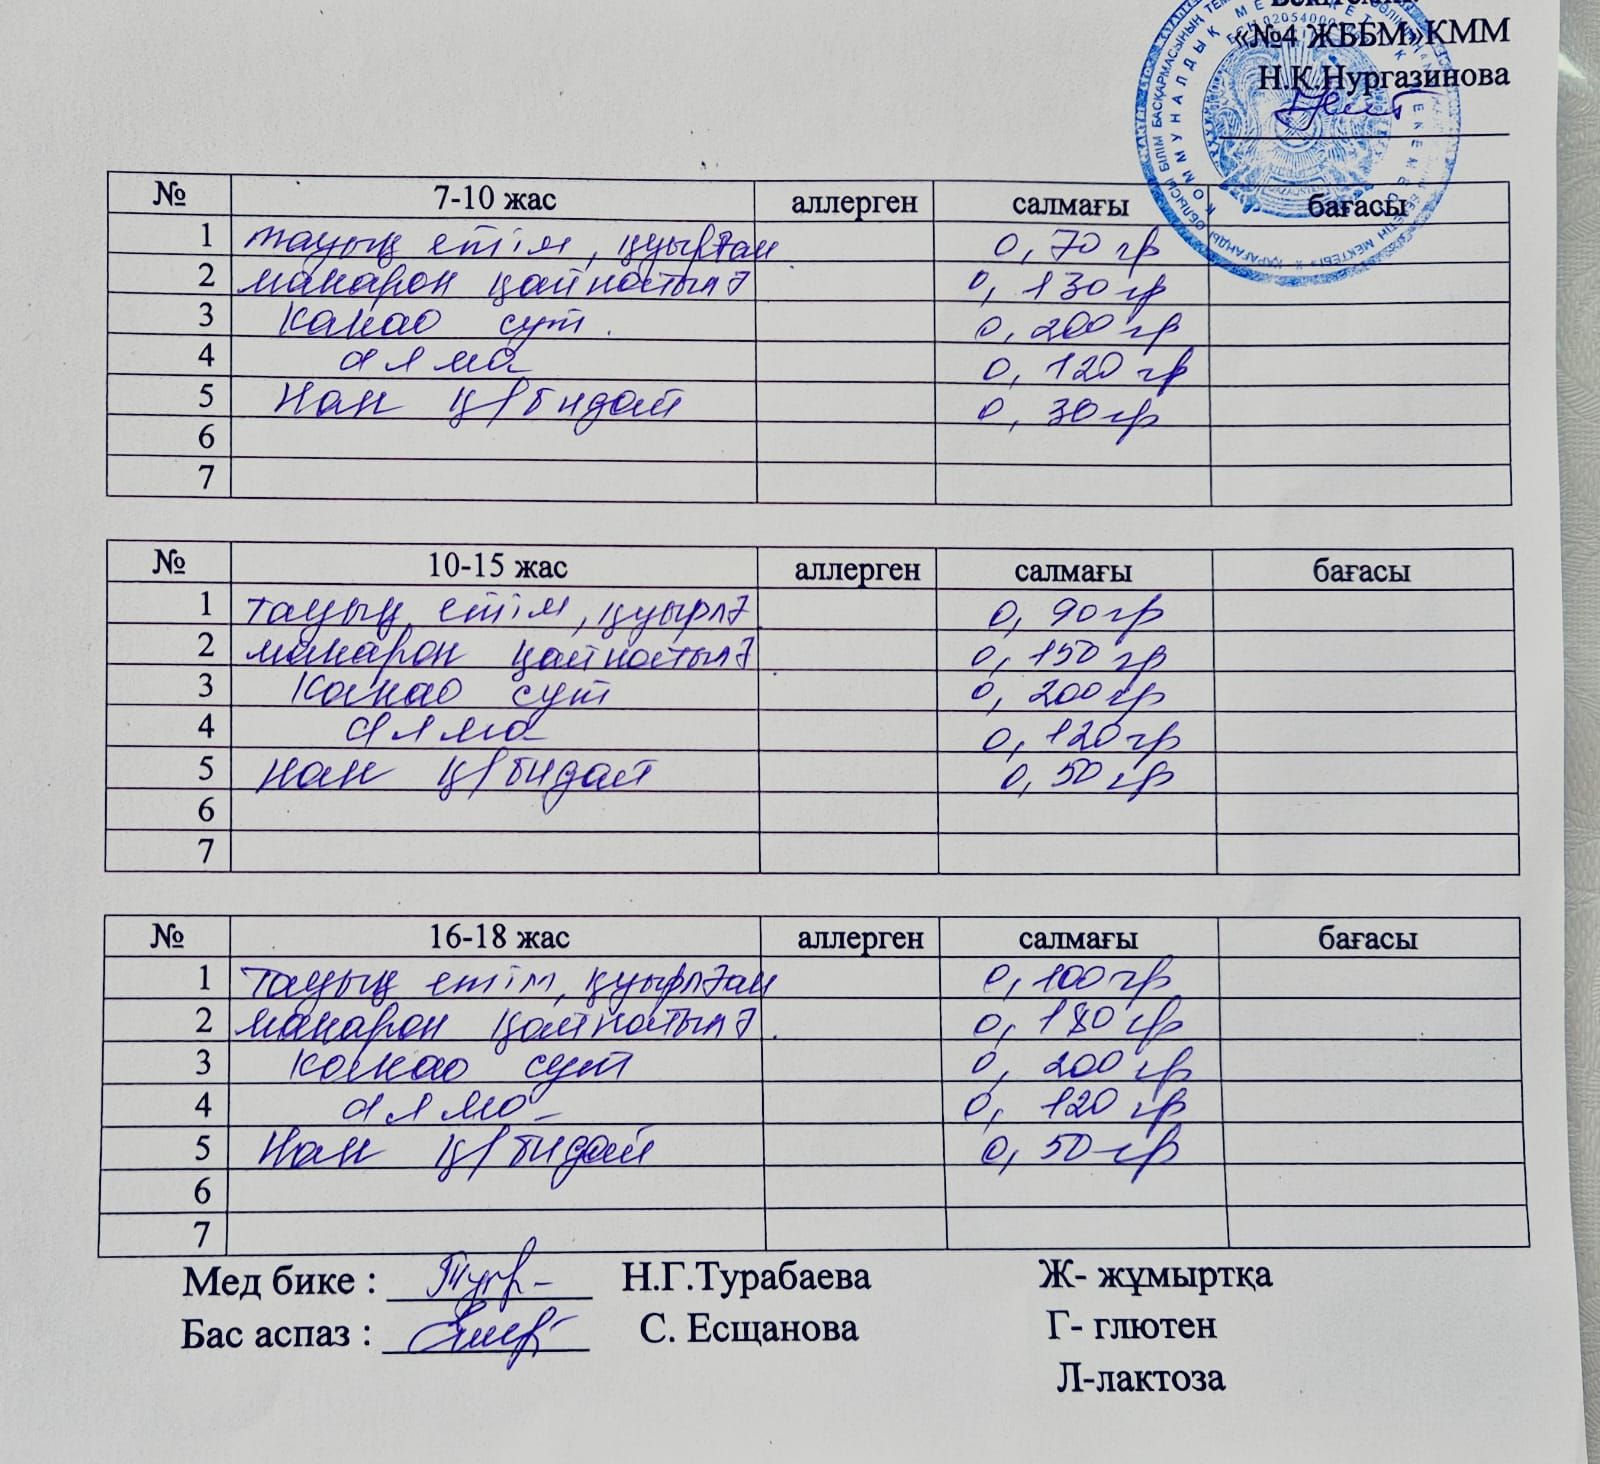 «№4 ЖББМ»КММ
Н.К.Нургазинова
№ 7-10 жас аллерген салмағы бағасы
1 тауық етім, қуырған 0,70 гр
2 макарон қайнатылғ 0,130 гр
3 Какао сүт. 0,200 гр
4 алма 0,120 гр
5 Нан қ/бидай 0,30 гр
6
7
№ 10-15 жас аллерген салмағы бағасы
1 тауық етім, қуырлғ 0,90 гр
2 макарон қайнатылғ 0,150 гр
3 Какао сүт 0,200 гр
4 алма 0,120 гр
5 Нан қ/бидай 0,50 гр
6
7
№ 16-18 жас аллерген салмағы бағасы
1 тауық етім, қуырлған 0,100 гр
2 макарон қайнатылғ. 0,180 гр
3 какао сүт 0,200 гр
4 алма 0,120 гр
5 Нан қ/бидай 0,50 гр
6
7
Мед бике : Н.Г.Турабаева Ж- жұмыртқа
Бас аспаз : С. Есщанова Г- глютен
Л-лактоза